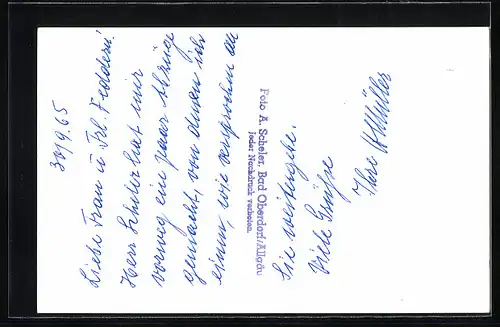 30/9.65
Liebe Frau u Frl. Feddern!
Herr Scheler hat mir
vorweg ein paar Abzüge
gemacht, von denen ich
einen, wie versprochen an
Sie weitergebe.
Viele Grüße
Ihre
Foto A. Scheler, Bad Oberdorf/Allgäu
jeder Nachdruck verboten.